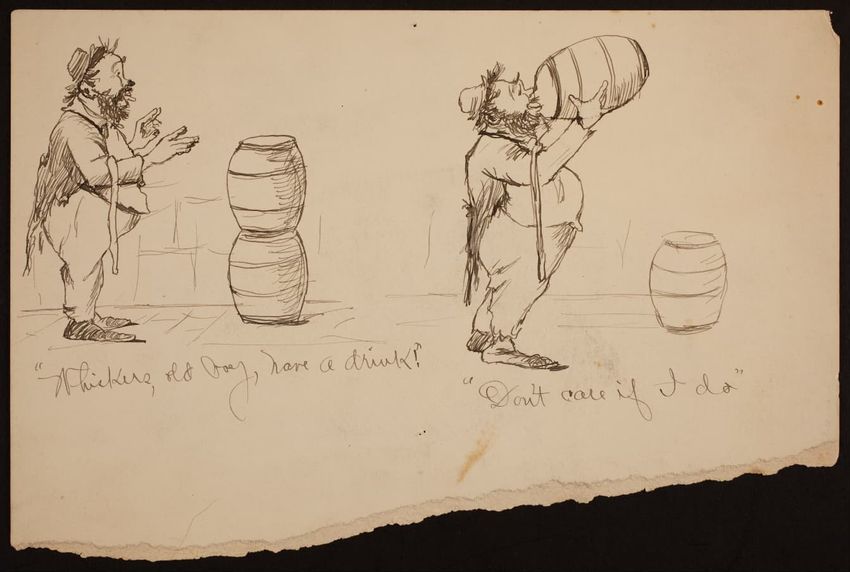 "Whiskers, old boy, have a drink!"
"Don't care if I do"